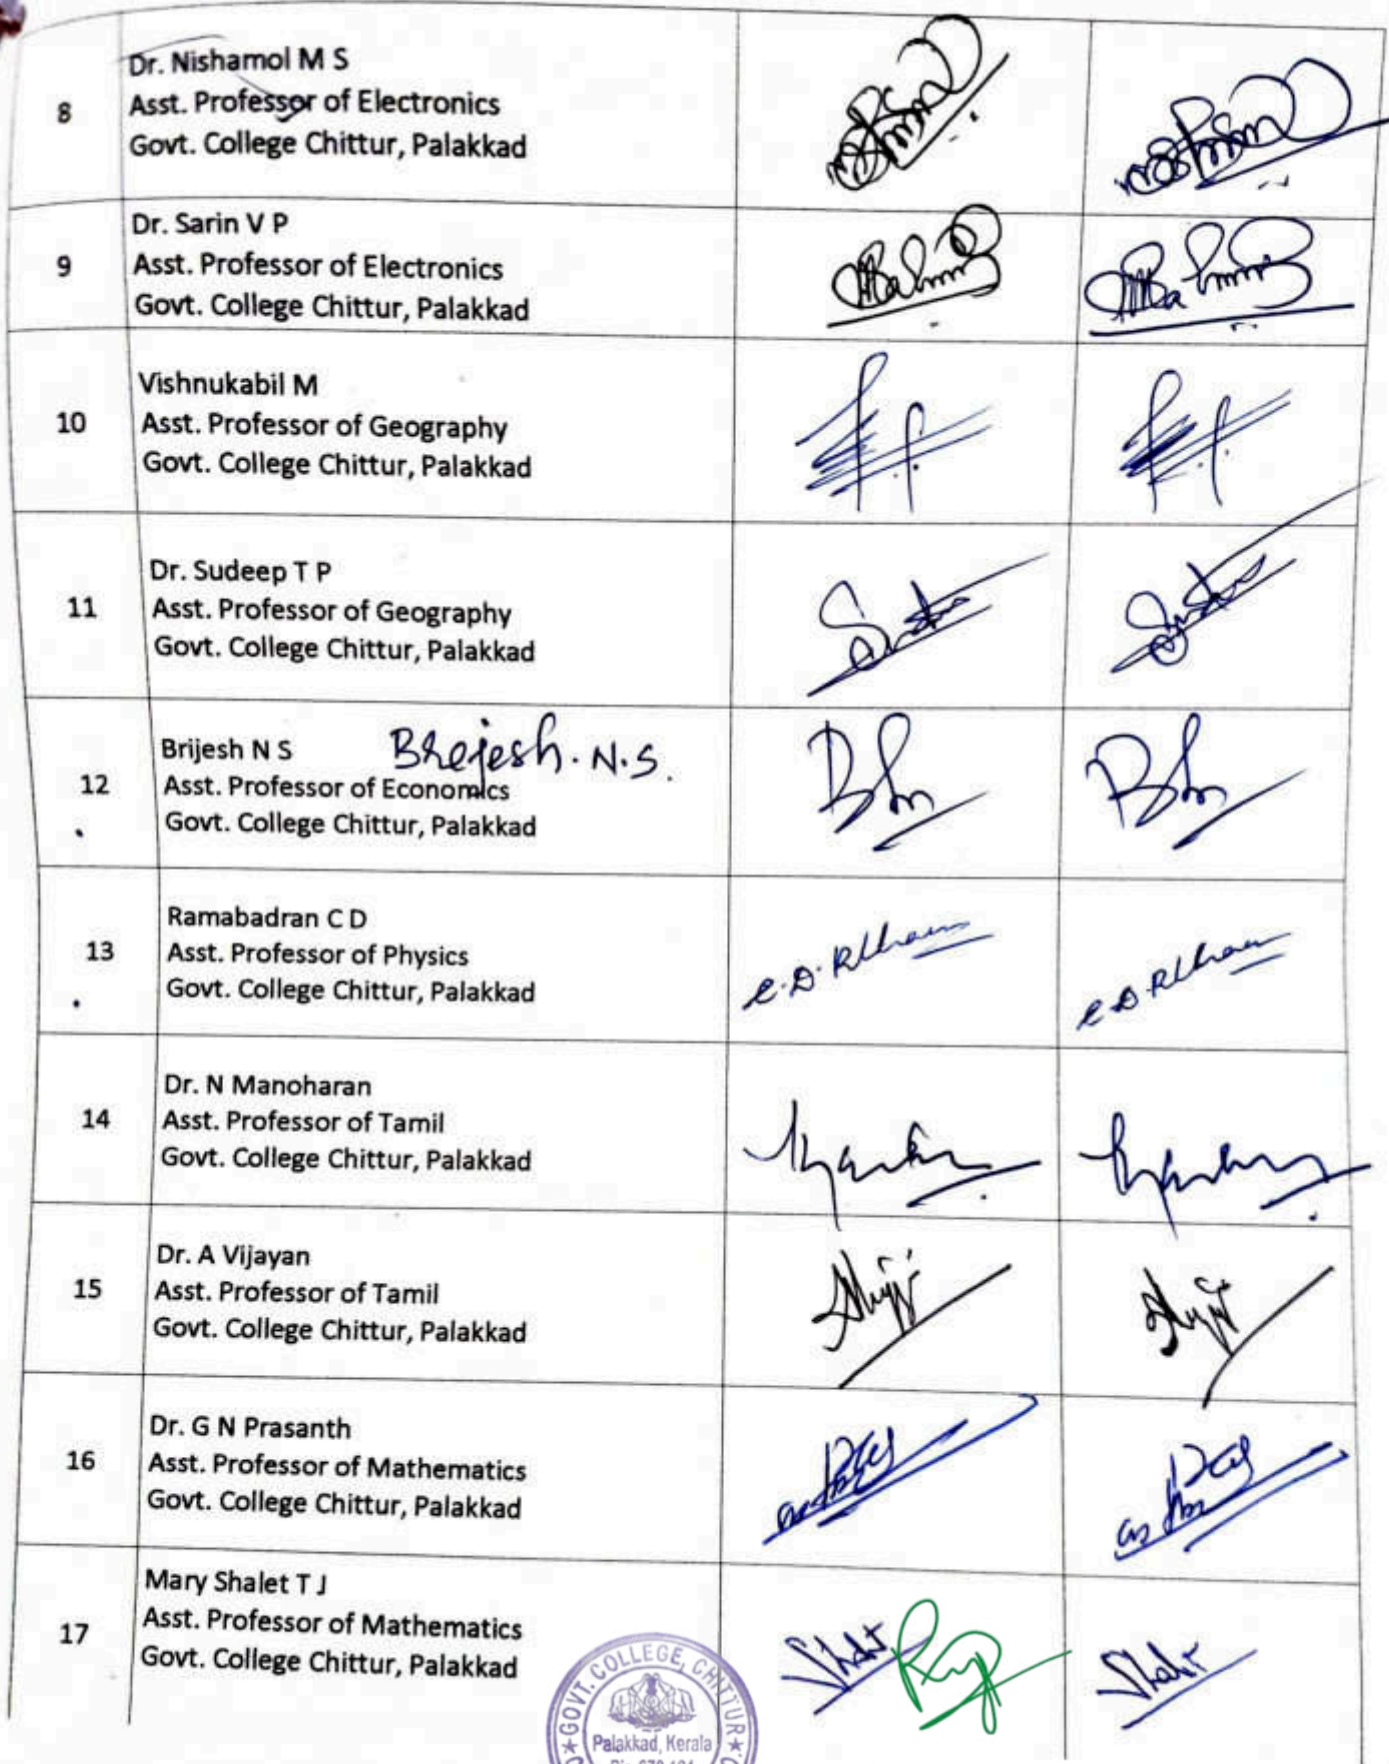 8
Dr. Nishamol M S
Asst. Professor of Electronics
Govt. College Chittur, Palakkad
9
Dr. Sarin V P
Asst. Professor of Electronics
Govt. College Chittur, Palakkad
10
Vishnukabil M
Asst. Professor of Geography
Govt. College Chittur, Palakkad
11
Dr. Sudeep T P
Asst. Professor of Geography
Govt. College Chittur, Palakkad
12
Brijesh N S Brejesh. N.S.
Asst. Professor of Economics
Govt. College Chittur, Palakkad
13
Ramabadran C D
Asst. Professor of Physics
Govt. College Chittur, Palakkad
14
Dr. N Manoharan
Asst. Professor of Tamil
Govt. College Chittur, Palakkad
15
Dr. A Vijayan
Asst. Professor of Tamil
Govt. College Chittur, Palakkad
16
Dr. G N Prasanth
Asst. Professor of Mathematics
Govt. College Chittur, Palakkad
17
Mary Shalet T J
Asst. Professor of Mathematics
Govt. College Chittur, Palakkad
GOVT. COLLEGE, CHITTUR
Palakkad, Kerala